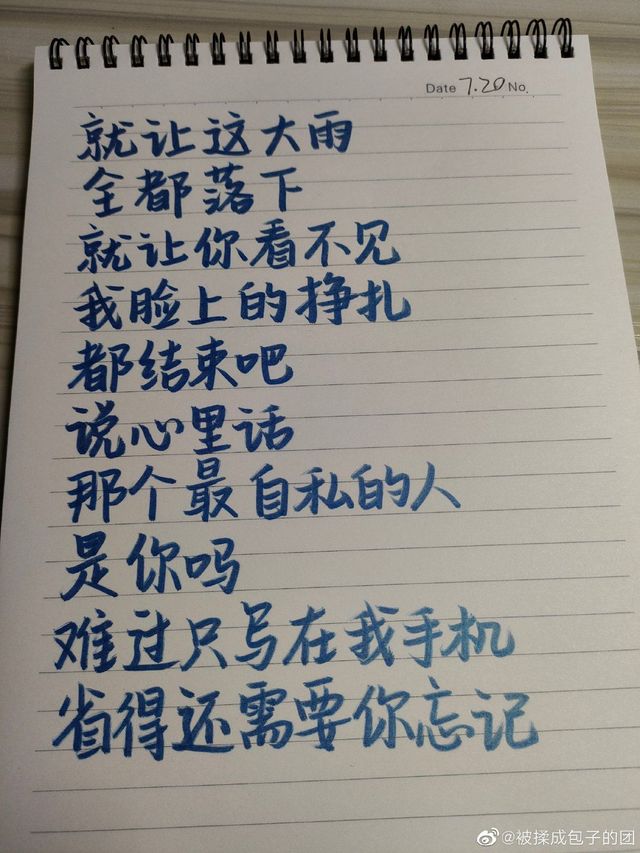 Date 7.20 No.
就让这大雨
全都落下
就让你看不见
我脸上的挣扎
都结束吧
说心里话
那个最自私的人
是你吗
难过只写在我手机
省得还需要你忘记
@被揉成包子的团